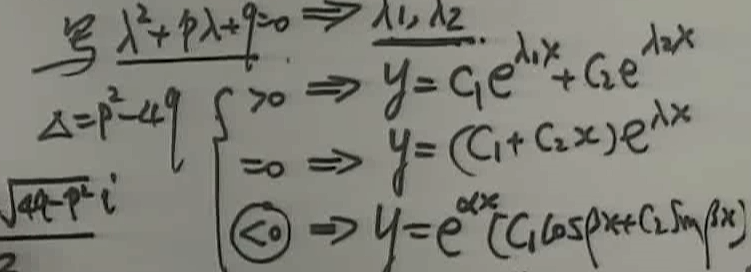 λ²+pλ+q=0 ⇒ λ1, λ2
Δ=p²-4q { >0 ⇒ y=C₁e^{λ₁x}+C₂e^{λ₂x}
=0 ⇒ y=(C₁+C₂x)e^{λx}
√(4q-p²) i / 2
<0 ⇒ y=e^{αx}(C₁cosβx+C₂sinβx)